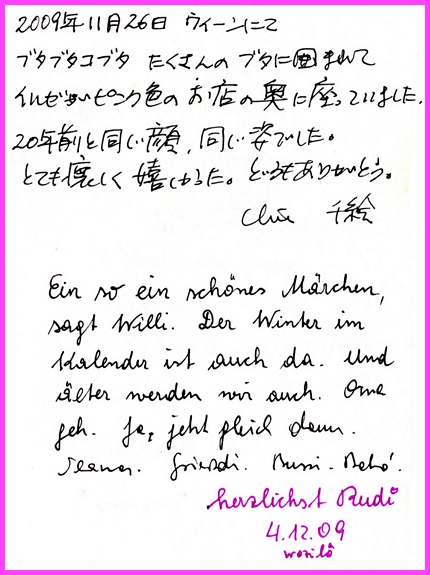 2009年11月26日 ウィーンにて
ブタブタコブタ たくさんの ブタに囲まれて
ピンク色の お店の奥に座っていました。
20年前と同じ顔、同じ姿でした。
とても 嬉しかった。どうもありがとう。
Chie 千絵
Ein so ein schönes Märchen,
sagt Willi. Der Winter im
Kalender ist auch da. Und
älter werden wir auch. Oma
geh. Ja, jetzt gleich dann.
Bussi. Baba.
herzlichst Rudi
4.12.09